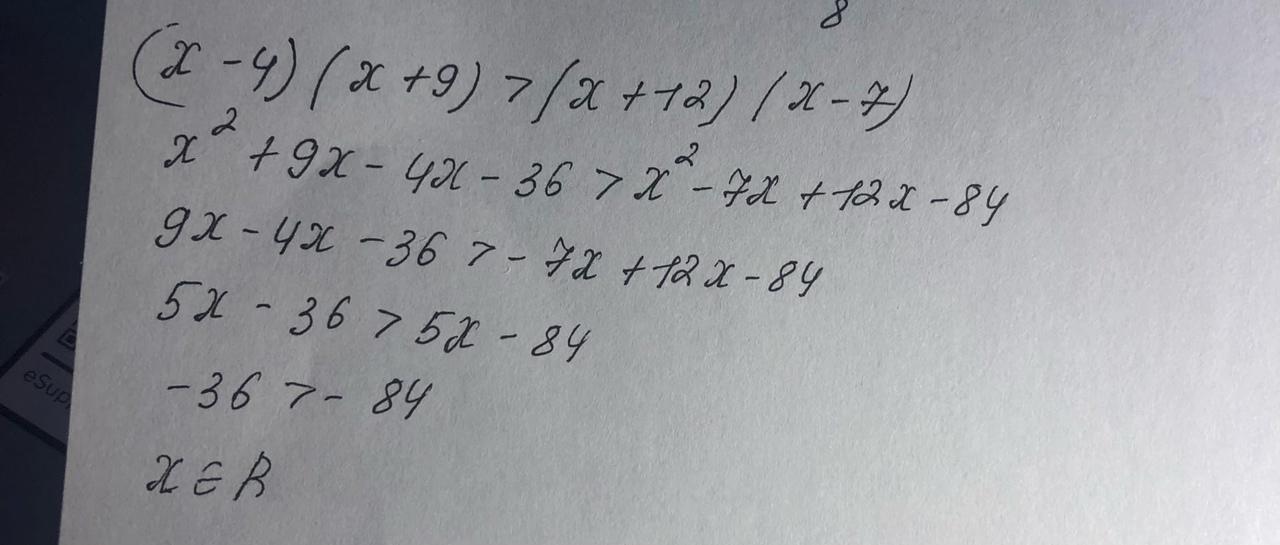 8
(x - 4) (x + 9) > (x + 12) (x - 7)
x² + 9x - 4x - 36 > x² - 7x + 12x - 84
9x - 4x - 36 > - 7x + 12x - 84
5x - 36 > 5x - 84
- 36 > - 84
x ∈ R